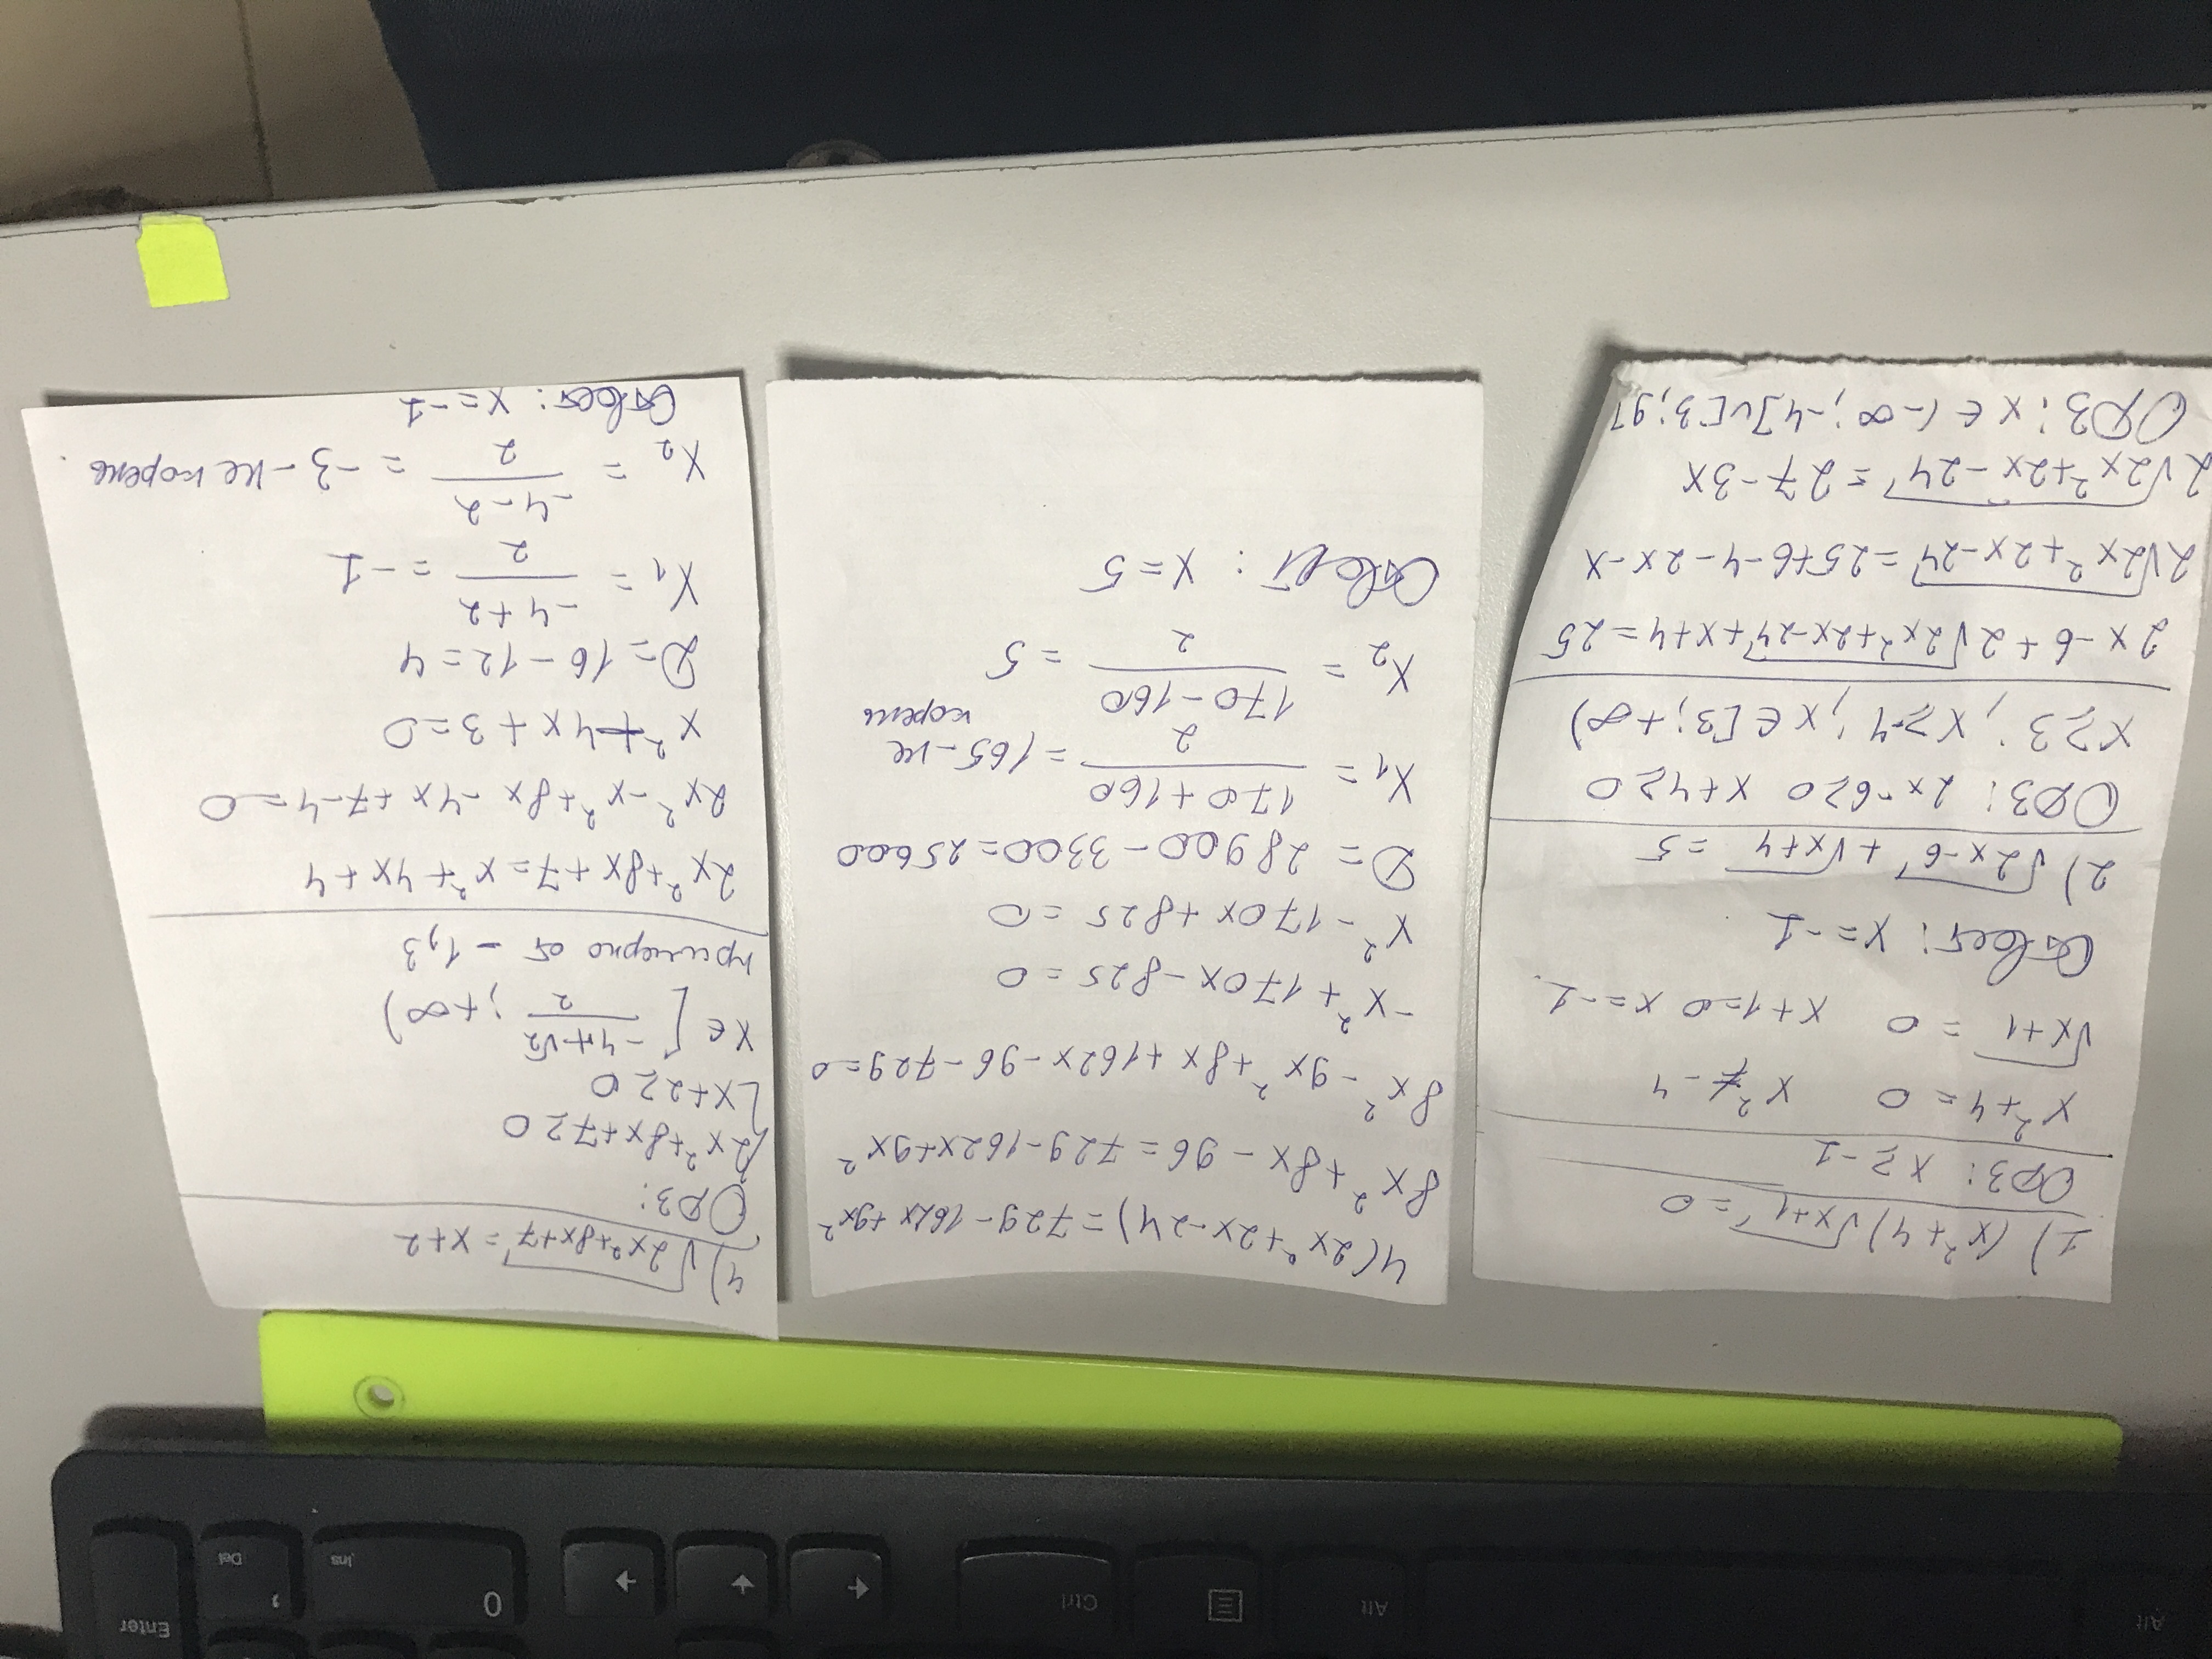 1) (x²+4)√x+1 = 0
ОДЗ: x ≥ -1
x²+4=0 x² ≠ -4
√x+1 = 0 x+1=0 x=-1.
Ответ: x=-1
2) √2x-6 + √x+4 = 5
ОДЗ: 2x-6≥0 x+4≥0
x≥3; x≥-4; x∈[3;+∞)
2x-6+2√2x²+2x-24+x+4=25
2√2x²+2x-24=25+6-4-2x-x
2√2x²+2x-24=27-3x
ОДЗ: x∈(-∞;-4]∪[3;9]
4(2x²+2x-24)=729-162x+9x²
8x²+8x-96=729-162x+9x²
8x²-9x²+8x+162x-96-729=0
-x²+170x-825=0
x²-170x+825=0
D=28900-3300=25600
x₁ = 170+160 / 2 = 165-не корень
x₂ = 170-160 / 2 = 5
Ответ: x=5
4) √2x²+8x+7 = x+2
ОДЗ:
2x²+8x+7≥0
x+2≥0
x∈[ -4+√2 / 2 ; +∞)
примерно от -1,3
2x²+8x+7=x²+4x+4
2x²-x²+8x-4x+7-4=0
x²+4x+3=0
D=16-12=4
x₁ = -4+2 / 2 = -1
x₂ = -4-2 / 2 = -3-не корень.
Ответ: x=-1
Enter
Del
,
Ins
0
Ctrl
Alt
Alt